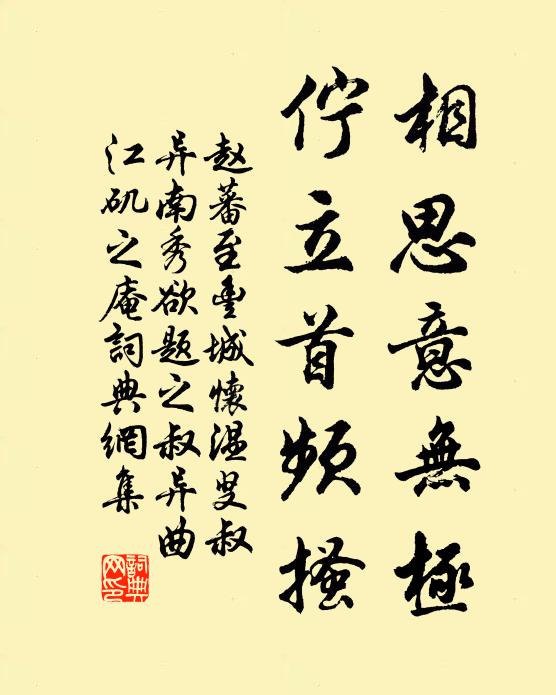 相思意無極
佇立首頻搔
赵蕃至豊城懷温叟叔
异南秀欲题之叔异曲
江矶之庵詞典網集
詞典網印